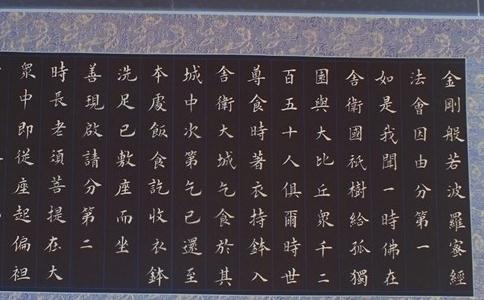 金剛般若波羅蜜經
法會因由分第一
如是我聞一時佛在
舍衛國祇樹給孤獨
園與大比丘眾千二
百五十人俱爾時世
尊食時著衣持鉢入
舍衛大城乞食於其
城中次第乞已還至
本處飯食訖收衣鉢
洗足已敷座而坐
善現啟請分第二
時長老須菩提在大
眾中即從座起偏袒